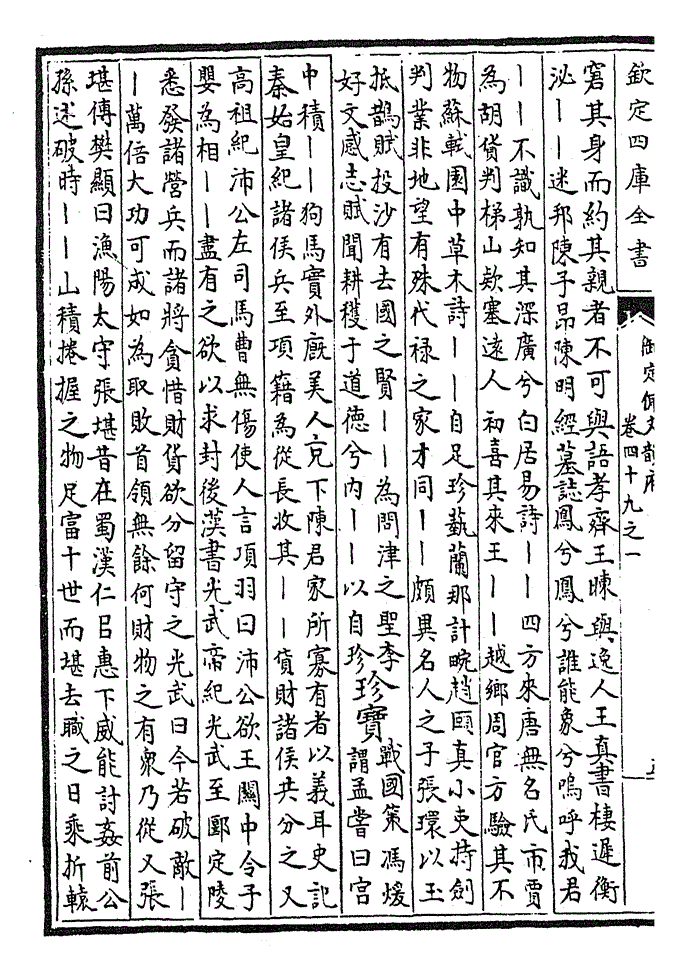 欽定四庫全書
御定佩文韻府
卷四十九之一
窘其身而約其親者不可與語孝齊王暕與逸人王真書棲遲衡
泌——迷邦陳子昂陳明經墓誌鳳兮鳳兮誰能象兮嗚呼我君
——不識孰知其深廣兮白居易詩——四方來唐無名氏市賈
為胡貨判梯山欵塞遠人初喜其來王——越鄉周官方驗其不
物蘇軾園中草木詩——自足珍蓺蘭那計畹趙頤真小吏持劍
判業非地望有殊代祿之家才同——頗異名人之子張環以玉
抵鵲賦投沙有去國之賢——為問津之聖李
好文感志賦聞耕穫于道德兮内——以自珍
珍寶
戰國策馮煖
謂孟嘗曰宫
中積——狗馬實外廐美人充下陳君家所寡有者以義耳史記
秦始皇紀諸侯兵至項籍為從長收其——貨財諸侯共分之又
高祖紀沛公左司馬曹無傷使人言項羽曰沛公欲王關中令子
嬰為相——盡有之欲以求封後漢書光武帝紀光武至郾定陵
悉發諸營兵而諸將貪惜財貨欲分留守之光武曰今若破敵—
—萬倍大功可成如為取敗首領無餘何財物之有衆乃從又張
堪傳樊顯曰漁陽太守張堪昔在蜀漢仁㠯惠下威能討姦前公
孫述破時——山積捲握之物足富十世而堪去職之日乘折轅